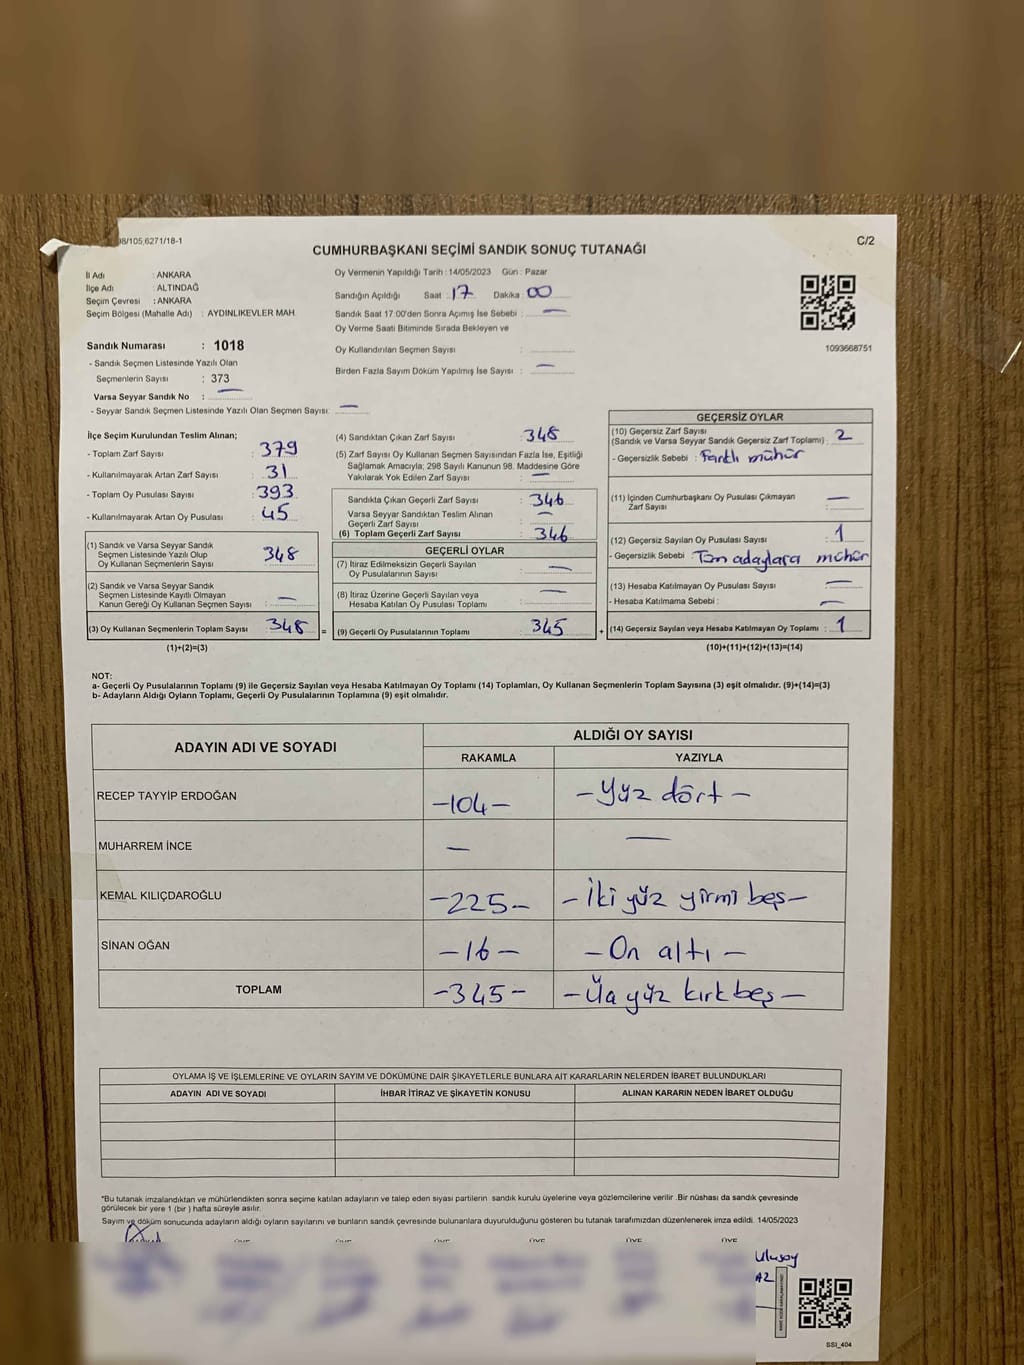 CUMHURBAŞKANI SEÇİMİ SANDIK SONUÇ TUTANAĞI
C/2
İl Adı : ANKARA
İlçe Adı : ALTINDAĞ
Seçim Çevresi : ANKARA
Seçim Bölgesi (Mahalle Adı) : AYDINLIKEVLER MAH.
Sandık Numarası : 1018
- Sandık Seçmen Listesinde Yazılı Olan
Seçmenlerin Sayısı : 373
Varsa Seyyar Sandık No : —
- Seyyar Sandık Seçmen Listesinde Yazılı Olan Seçmen Sayısı: —
Oy Vermenin Yapıldığı Tarih : 14/05/2023 Gün : Pazar
Sandığın Açıldığı Saat : 17 Dakika : 00
Sandık Saat 17:00'den Sonra Açımış İse Sebebi : —
Oy Verme Saati Bitiminde Sırada Bekleyen ve
Oy Kullandırılan Seçmen Sayısı :
Birden Fazla Sayım Döküm Yapılmış İse Sayısı : —
1093668751
İlçe Seçim Kurulundan Teslim Alınan;
- Toplam Zarf Sayısı : 379
- Kullanılmayarak Artan Zarf Sayısı : 31
- Toplam Oy Pusulası Sayısı : 393
- Kullanılmayarak Artan Oy Pusulası : 45
(1) Sandık ve Varsa Seyyar Sandık
Seçmen Listesinde Yazılı Olup
Oy Kullanan Seçmenlerin Sayısı : 348
(2) Sandık ve Varsa Seyyar Sandık
Seçmen Listesinde Kayıtlı Olmayan
Kanun Gereği Oy Kullanan Seçmen Sayısı : —
(3) Oy Kullanan Seçmenlerin Toplam Sayısı : 348 =
(1)+(2)=(3)
(4) Sandıktan Çıkan Zarf Sayısı : 348
(5) Zarf Sayısı Oy Kullanan Seçmen Sayısından Fazla İse, Eşitliği
Sağlamak Amacıyla; 298 Sayılı Kanunun 98. Maddesine Göre
Yakılarak Yok Edilen Zarf Sayısı : —
Sandıkta Çıkan Geçerli Zarf Sayısı : 346
Varsa Seyyar Sandıktan Teslim Alınan
Geçerli Zarf Sayısı : —
(6) Toplam Geçerli Zarf Sayısı : 346
GEÇERLİ OYLAR
(7) İtiraz Edilmeksizin Geçerli Sayılan
Oy Pusulalarının Sayısı : —
(8) İtiraz Üzerine Geçerli Sayılan veya
Hesaba Katılan Oy Pusulası Toplamı : —
(9) Geçerli Oy Pusulalarının Toplamı : 345 +
GEÇERSİZ OYLAR
(10) Geçersiz Zarf Sayısı
(Sandık ve Varsa Seyyar Sandık Geçersiz Zarf Toplamı) : 2
- Geçersizlik Sebebi : Farklı mühür
(11) İçinden Cumhurbaşkanı Oy Pusulası Çıkmayan
Zarf Sayısı : —
(12) Geçersiz Sayılan Oy Pusulası Sayısı : 1
- Geçersizlik Sebebi : Tüm adaylara mühür
(13) Hesaba Katılmayan Oy Pusulası Sayısı : —
- Hesaba Katılmama Sebebi : —
(14) Geçersiz Sayılan veya Hesaba Katılmayan Oy Toplamı : 1
(10)+(11)+(12)+(13)=(14)
NOT:
a- Geçerli Oy Pusulalarının Toplamı (9) ile Geçersiz Sayılan veya Hesaba Katılmayan Oy Toplamı (14) Toplamları, Oy Kullanan Seçmenlerin Toplam Sayısına (3) eşit olmalıdır. (9)+(14)=(3)
b- Adayların Aldığı Oyların Toplamı, Geçerli Oy Pusulalarının Toplamına (9) eşit olmalıdır.
ADAYIN ADI VE SOYADI
ALDIĞI OY SAYISI
RAKAMLA YAZIYLA
RECEP TAYYİP ERDOĞAN -104- -Yüz dört-
MUHARREM İNCE — —
KEMAL KILIÇDAROĞLU -225- -İki yüz yirmi beş-
SİNAN OĞAN -16- -On altı-
TOPLAM -345- -Üç yüz kırk beş-
OYLAMA İŞ VE İŞLEMLERİNE VE OYLARIN SAYIM VE DÖKÜMÜNE DAİR ŞİKAYETLERLE BUNLARA AİT KARARLARIN NELERDEN İBARET BULUNDUKLARI
ADAYIN ADI VE SOYADI İHBAR İTİRAZ VE ŞİKAYETİN KONUSU ALINAN KARARIN NEDEN İBARET OLDUĞU
*Bu tutanak imzalandıktan ve mühürlendikten sonra seçime katılan adayların ve talep eden siyasi partilerin sandık kurulu üyelerine veya gözlemcilerine verilir .Bir nüshası da sandık çevresinde
görülecek bir yere 1 (bir ) hafta süreyle asılır.
Sayım ve döküm sonucunda adayların aldığı oyların sayılarını ve bunların sandık çevresinde bulunanlara duyurulduğunu gösteren bu tutanak tarafımızdan düzenlenerek imza edildi. 14/05/2023
ÜYE ÜYE ÜYE ÜYE ÜYE ÜYE
Ulusoy
SSI_404